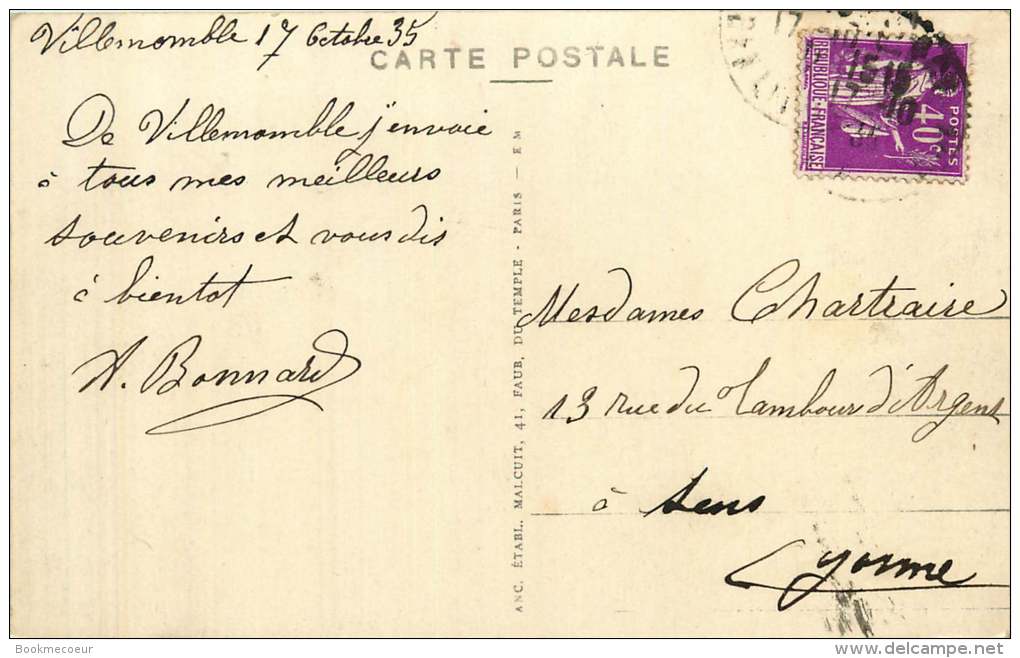 Villemomble 17 Octobre 35
CARTE POSTALE
De Villemomble j'envoie
à tous mes meilleurs
souvenirs et vous dis
à bientot
A. Bonnard
ANC. ÉTABL. MALCUIT, 41, FAUB. DU TEMPLE - PARIS - E M
REPUBLIQUE-FRANÇAISE
POSTES
40c
17 -10
15 15
17 10
Mesdames Chartraire
13 rue du Tambour d'Argent
à Sens
Yonne
Bookmecoeur
delcampe.net